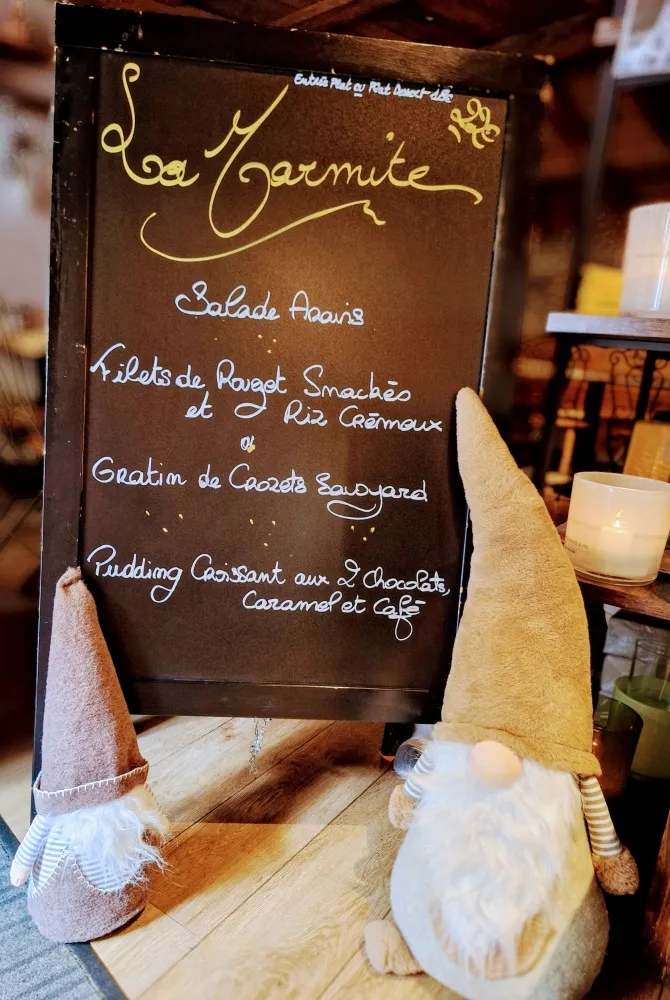 Entrée Plat ou Plat Dessert 18€
La Marmite
Salade Aravis
Filets de Rouget Snackés
et Riz Crémeux
ou
Gratin de Crozets Savoyard
Pudding Croissant aux 2 Chocolats,
Caramel et Café